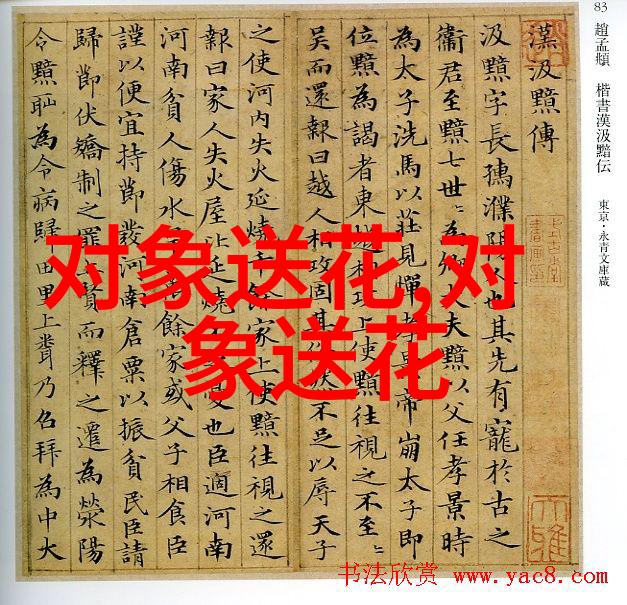 83 趙孟頫 楷書漢汲黯伝 東京・永青文庫蔵
漢汲黯傳
汲黯字長孺濮陽人也其先有寵於古之
衞君至黯七世〻為卿大夫黯以父任孝景時
為太子洗馬以莊見憚孝景帝崩太子即
位黯為謁者東越相攻上使黯往視之不至〻
吳而還報曰越人相攻固其俗然不足以辱天子
之使河內失火延燒千餘家上使黯往視之還
報曰家人失火屋比延燒憂也臣適河南
河南貧人傷水餘家或父子相食臣
謹以便宜持節發河南倉粟以振貧民臣請
歸節伏矯制之罪上賢而釋之遷為滎陽
令黯恥為令病歸田里上聞乃召拜為中大
对象送花,对
象送花
书法欣赏 www.yac8.com